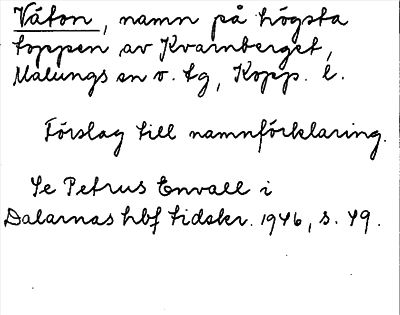 Våton, namn på högsta
toppen av Kvarnberget,
Malungs sn o. tg, Kopp. l.
Förslag till namnförklaring.
Se Petrus Envall i
Dalarnas hbf tidskr. 1946, s. 49.